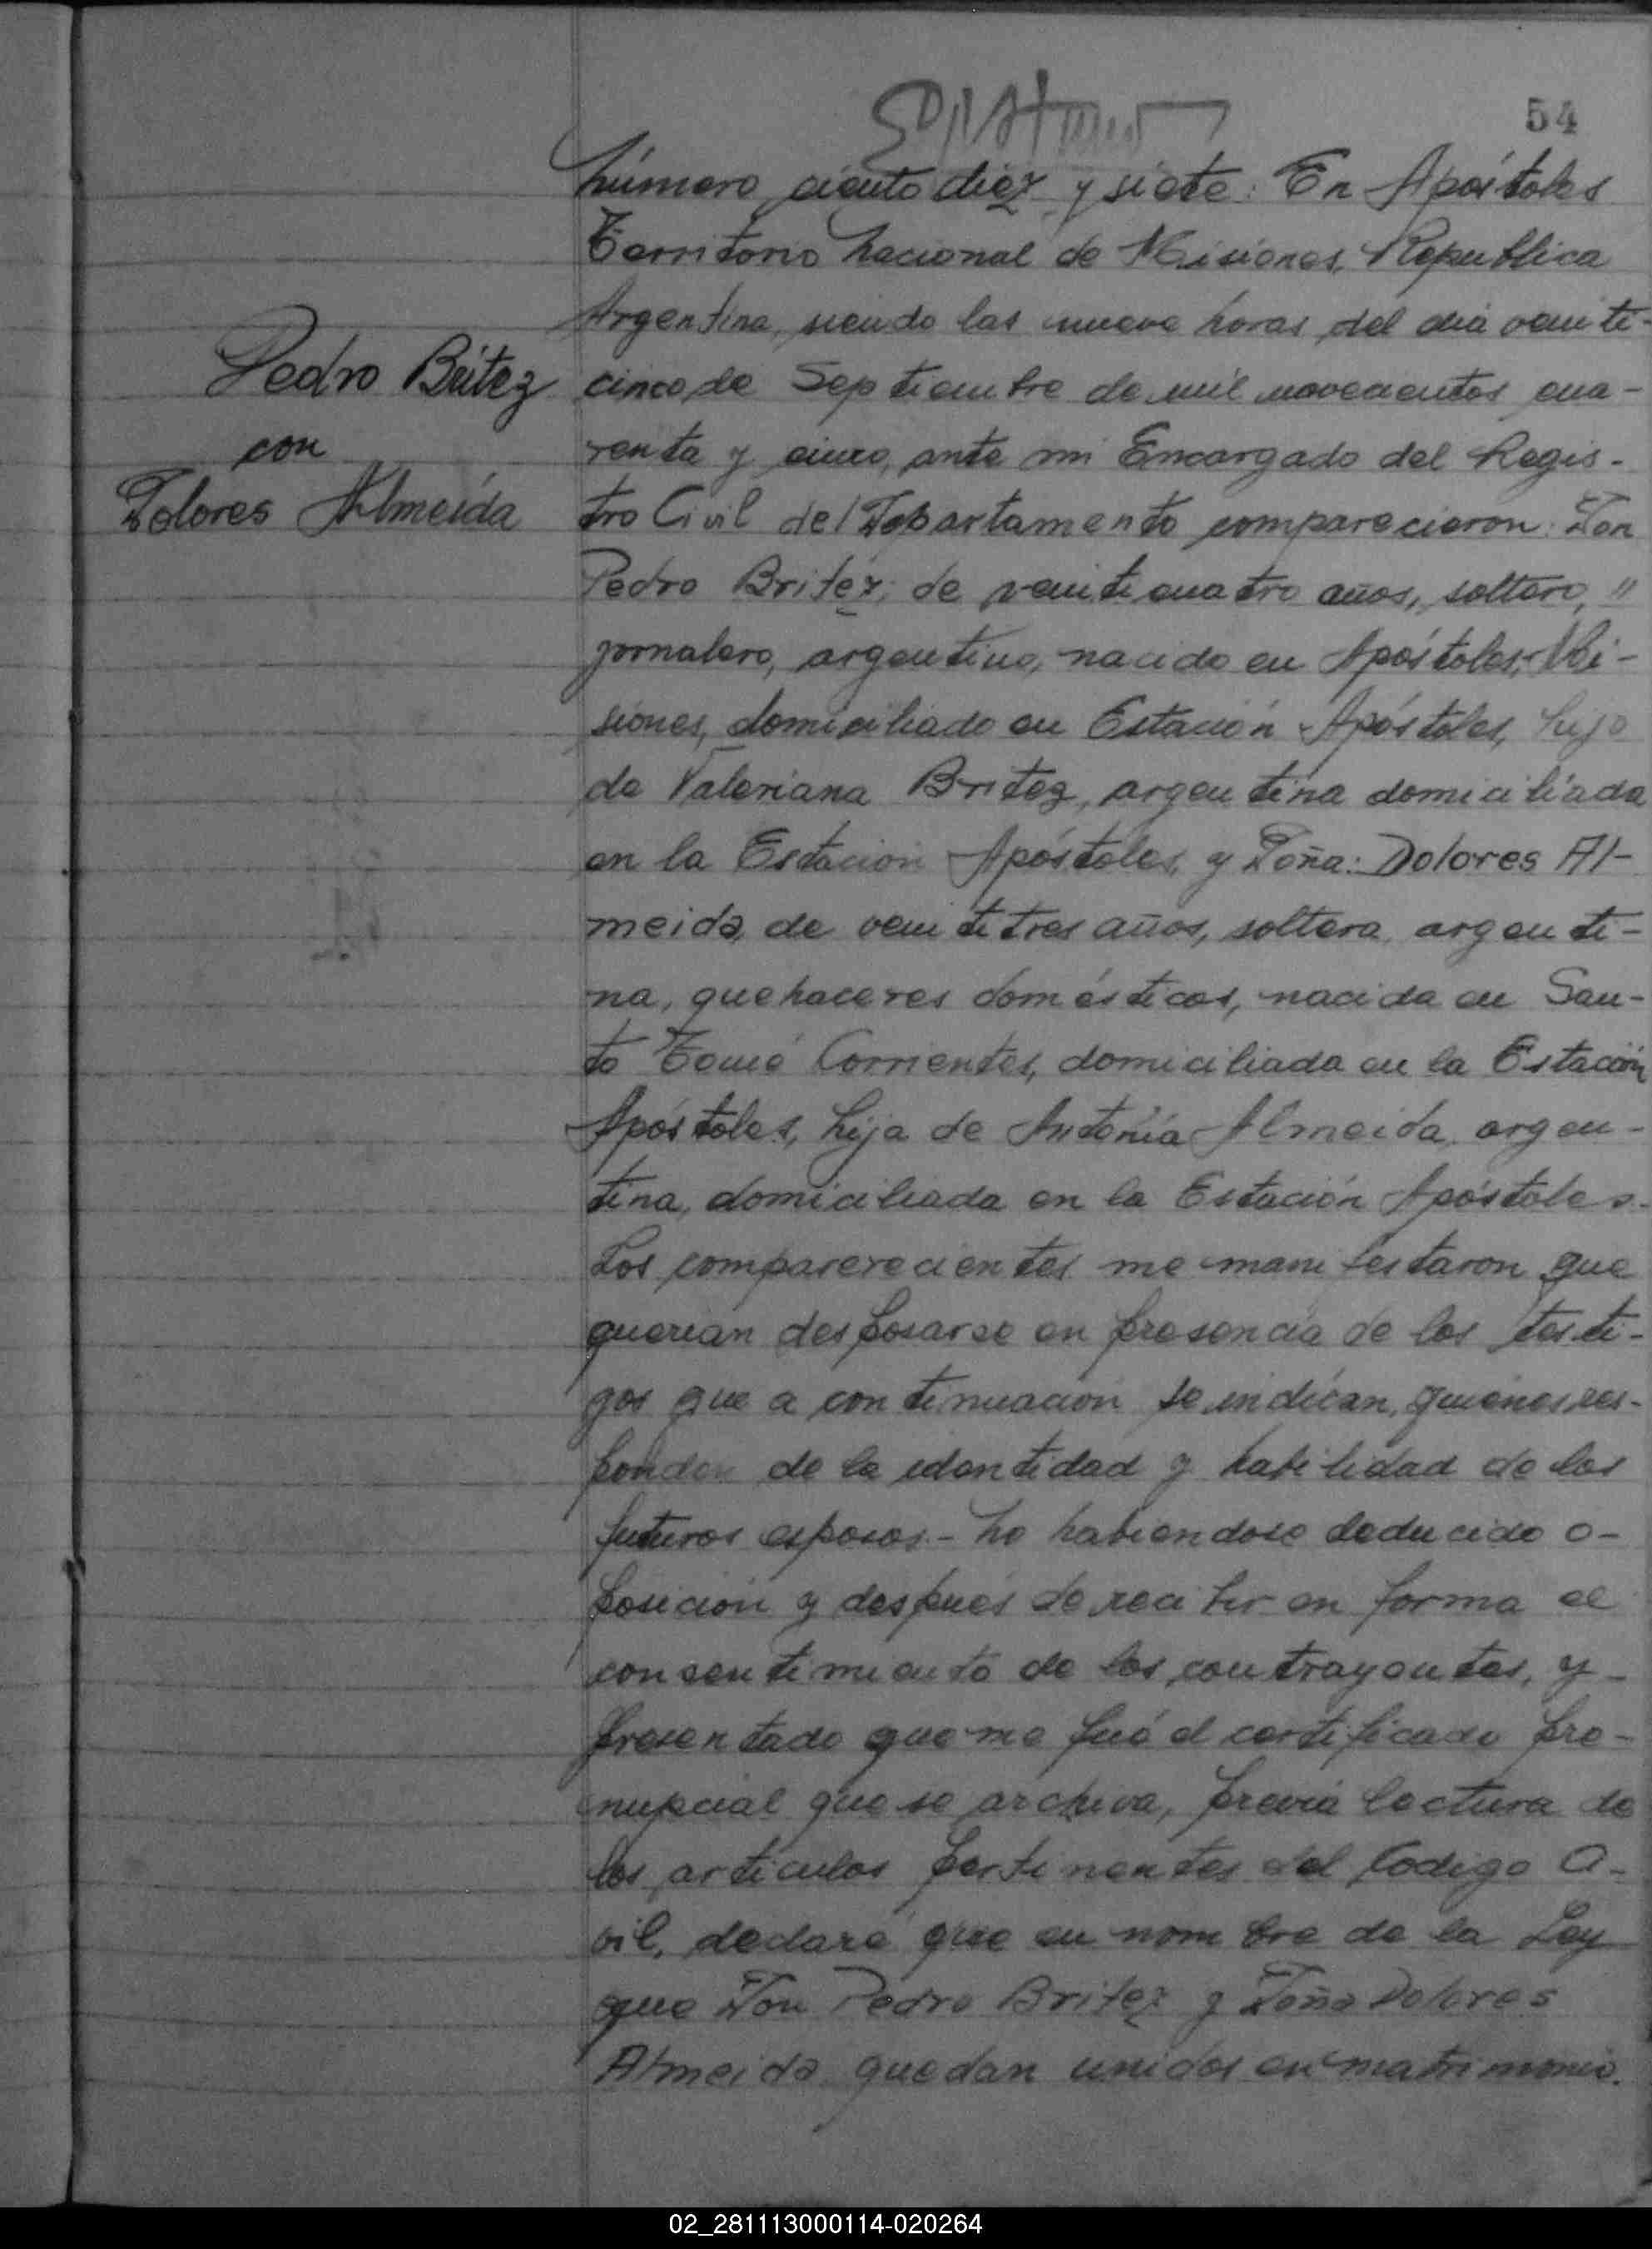 54
Número ciento diez y siete: En Apóstoles
Territorio Nacional de Misiones, Republica
Argentina, siendo las nueve horas del dia veinti-
Pedro Britez
con
Dolores Almeida
cinco de Septiembre de mil novecientos cua-
renta y cinco, ante mi Encargado del Regis-
tro Civil del Departamento comparecieron: Don
Pedro Britez; de veinticuatro años, soltero, "
jornalero, argentino, nacido en Apóstoles, Mi-
siones, domiciliado en Estación Apóstoles, hijo
de Valeriana Britez, argentina domiciliada
en la Estación Apóstoles, y Doña: Dolores Al-
meida, de veintitres años, soltera, argenti-
na, quehaceres domésticos, nacida en San-
to Tomé Corrientes, domiciliada en la Estación
Apóstoles, hija de Antonia Almeida, argen-
tina, domiciliada en la Estación Apóstoles.-
Los comparerecientes me manifestaron que
querian desposarse en presencia de los testi-
gos que a continuación se indican, quienes res-
ponden de la identidad y habilidad de los
futuros esposos.- No habiendose deducido o-
posición y después de recibir en forma el
consentimiento de los contrayentes, y
presentado que me fué el certificado pre-
nupcial que se archiva, previa lectura de
los articulos pertinentes del Codigo Ci-
vil, declaré que en nombre de la Ley
que Don Pedro Britez y Doña Dolores
Almeida quedan unidos en matrimonio.
02_281113000114-020264